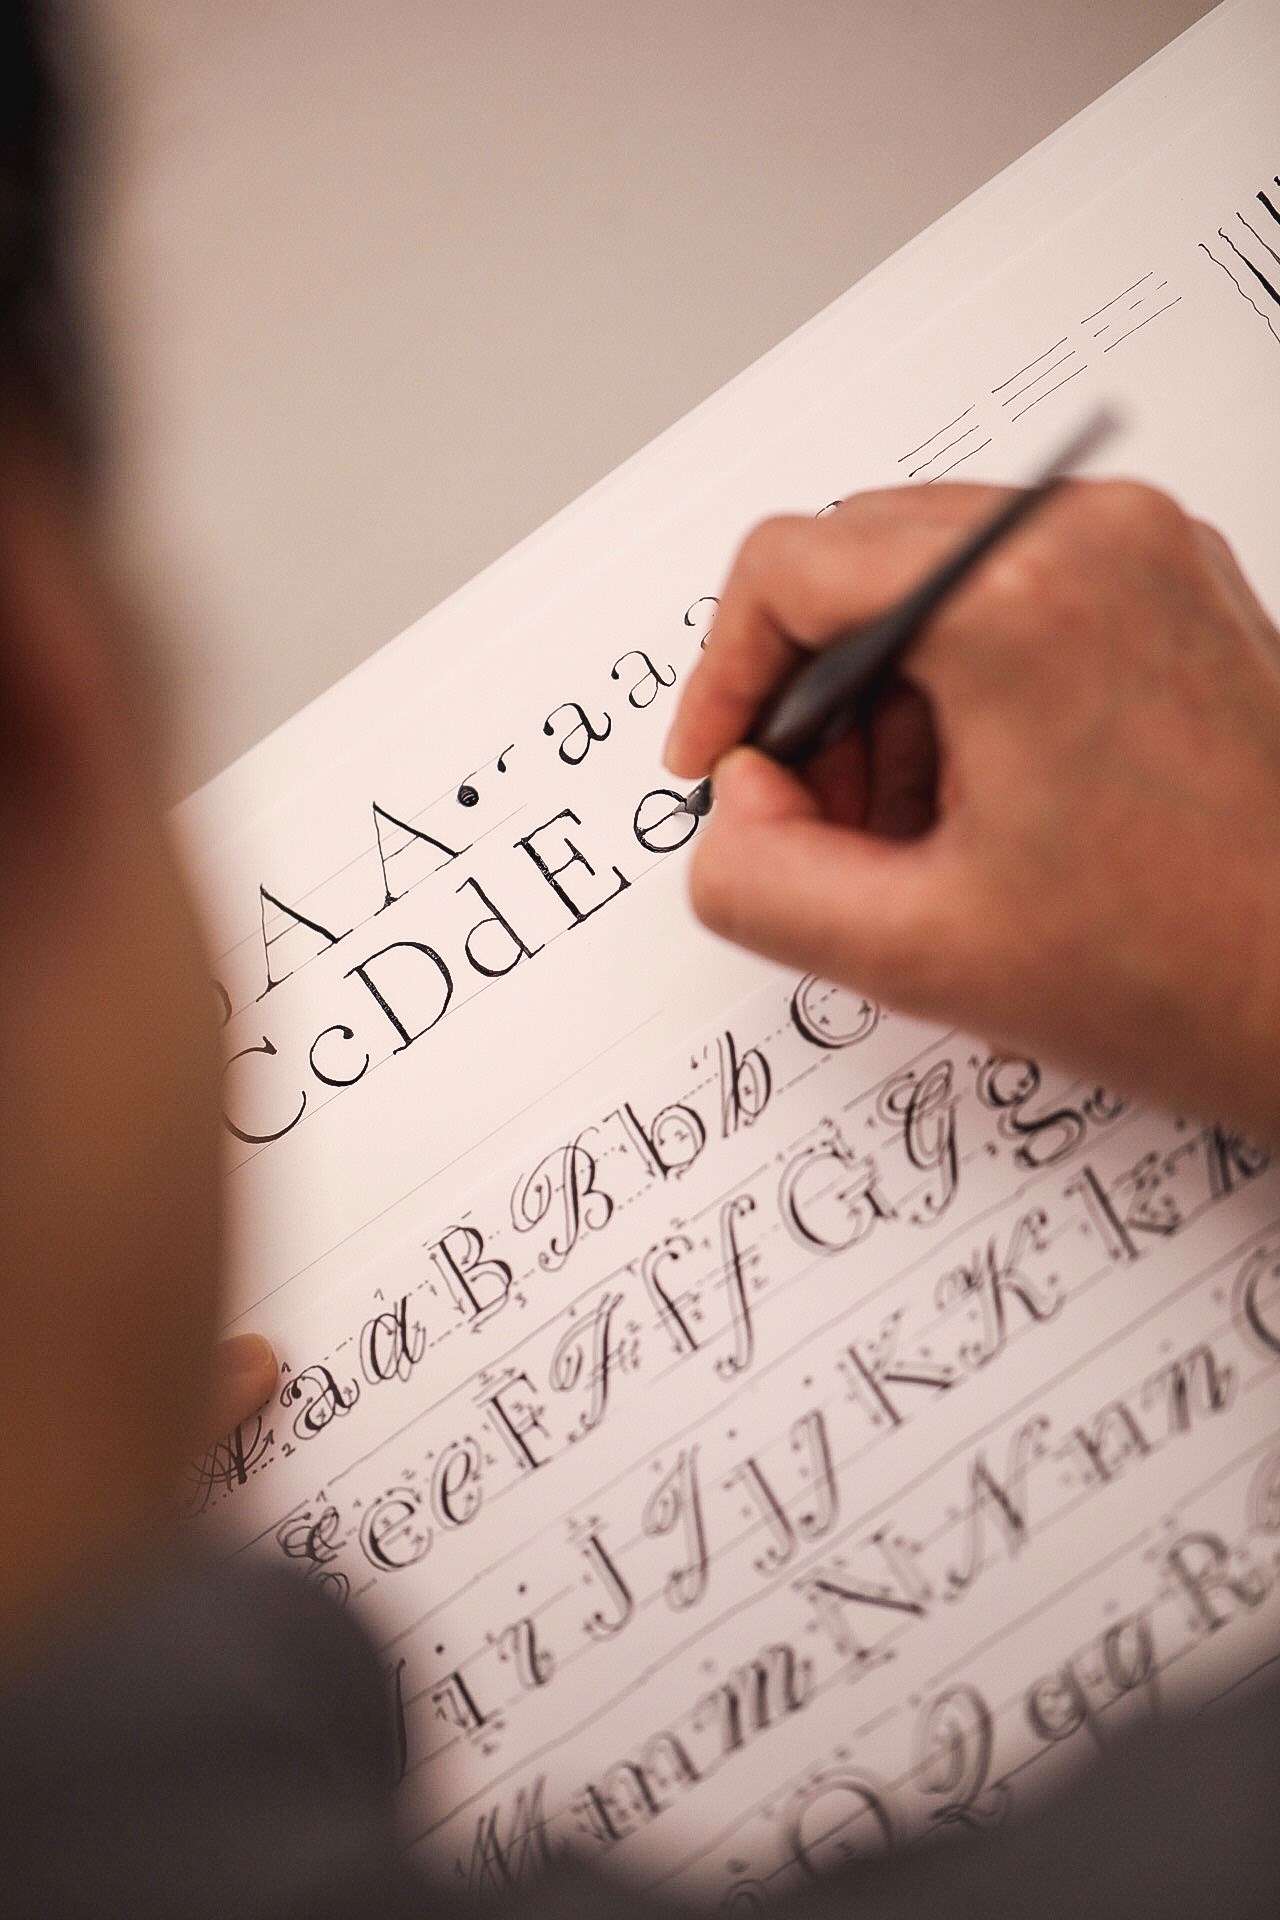 A A a a a
C c D d E e
a a B B B b b C
e e e F F f f G G g
i i J J j j K K k k
m m m N N n n
Q Q q q R